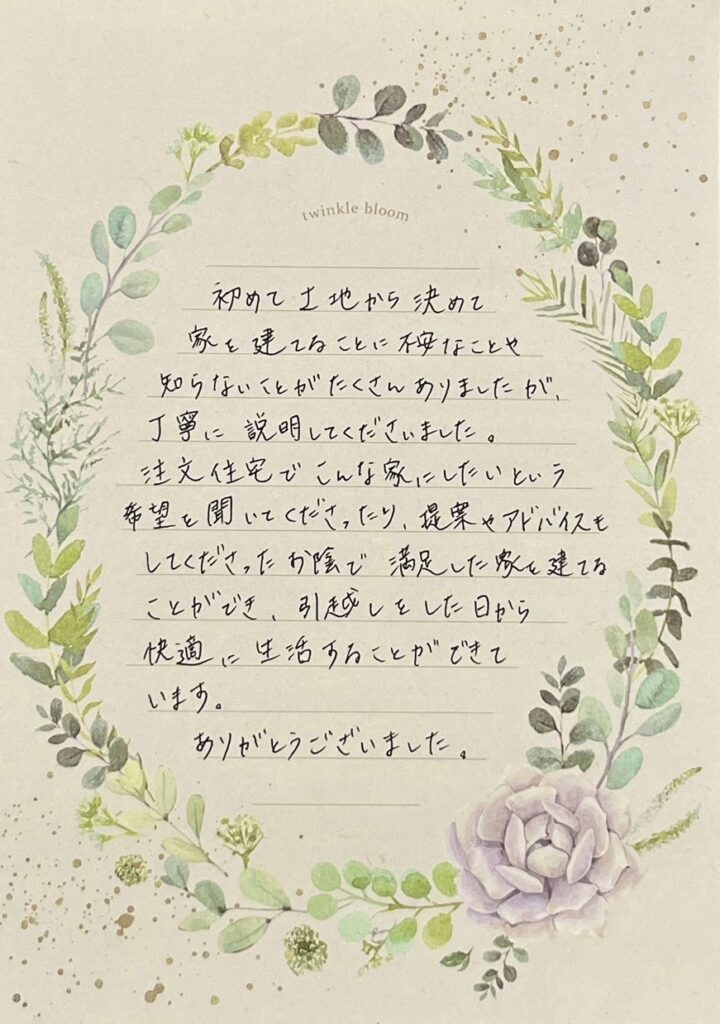 twinkle bloom
初めて土地から決めて
家を建てることに不安なことや
知らないことがたくさんありましたが、
丁寧に説明してくださいました。
注文住宅でこんな家にしたいという
希望を聞いてくださったり、提案やアドバイスも
してくださったお陰で満足した家を建てる
ことができ、引越しをした日から
快適に生活することができて
います。
ありがとうございました。